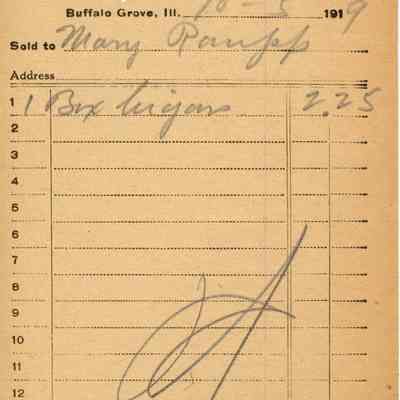 Buffalo Grove, Ill. 10-5 1919
Sold to Mary Raupp
Address
1 1 Box Cigars 2.25
2
3
4
5
6
7
8
9
10
11
12